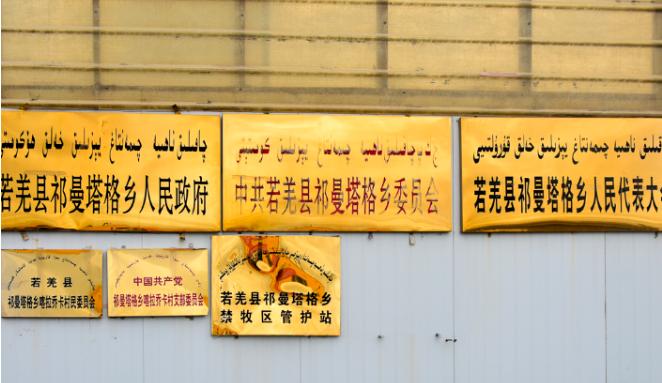 چاقىلىق ناھىيە چىمەنتاغ يېزىلىق خەلق ھۆكۈمىتى
若羌县祁曼塔格乡人民政府
چاقىلىق ناھىيە چىمەنتاغ يېزىلىق كومىتېتى
中共若羌县祁曼塔格乡委员会
ناھىيە چىمەنتاغ يېزىلىق خەلق قۇرۇلتىيى
若羌县祁曼塔格乡人民代表大
若羌县
祁曼塔格乡喀拉乔卡村民委员会
中国共产党
祁曼塔格乡喀拉乔卡村支部委员会
若羌县祁曼塔格乡
禁牧区管护站